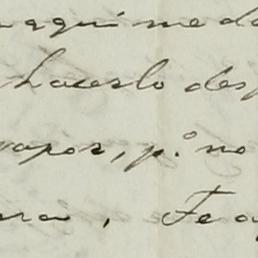 aqui me da
hacerlo des
vapor, p.º no
ra, Te a